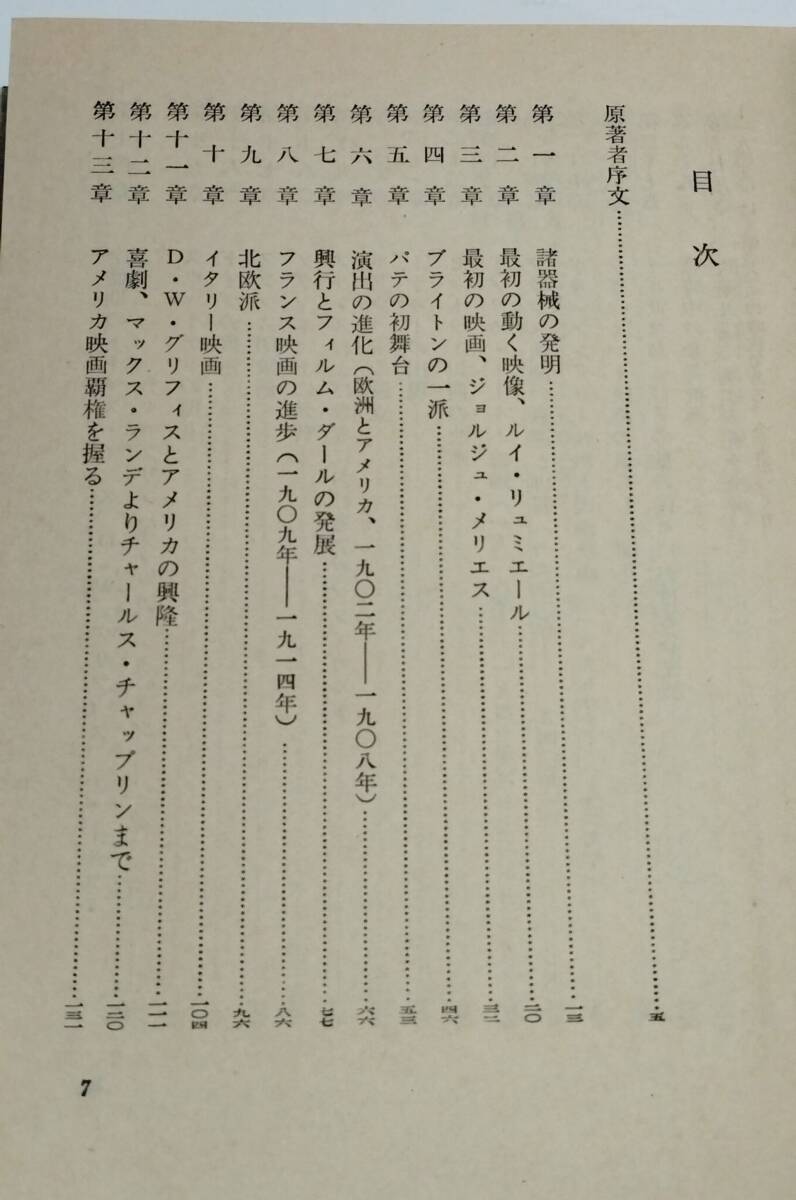 目次
原著者序文……五
第一章 諸器械の発明……一三
第二章 最初の動く映像、ルイ・リュミエール……二〇
第三章 最初の映画、ジョルジュ・メリエス……三二
第四章 ブライトンの一派……四六
第五章 パテの初舞台……五三
第六章 演出の進化(欧洲とアメリカ、一九〇二年――一九〇八年)……六六
第七章 興行とフィルム・ダールの発展……七七
第八章 フランス映画の進歩(一九〇九年――一九一四年)……八六
第九章 北欧派……九六
第十章 イタリー映画……一〇四
第十一章 D・W・グリフィスとアメリカの興隆……一一一
第十二章 喜劇、マックス・ランデよりチャールス・チャップリンまで……一二〇
第十三章 アメリカ映画覇権を握る……一三一
7